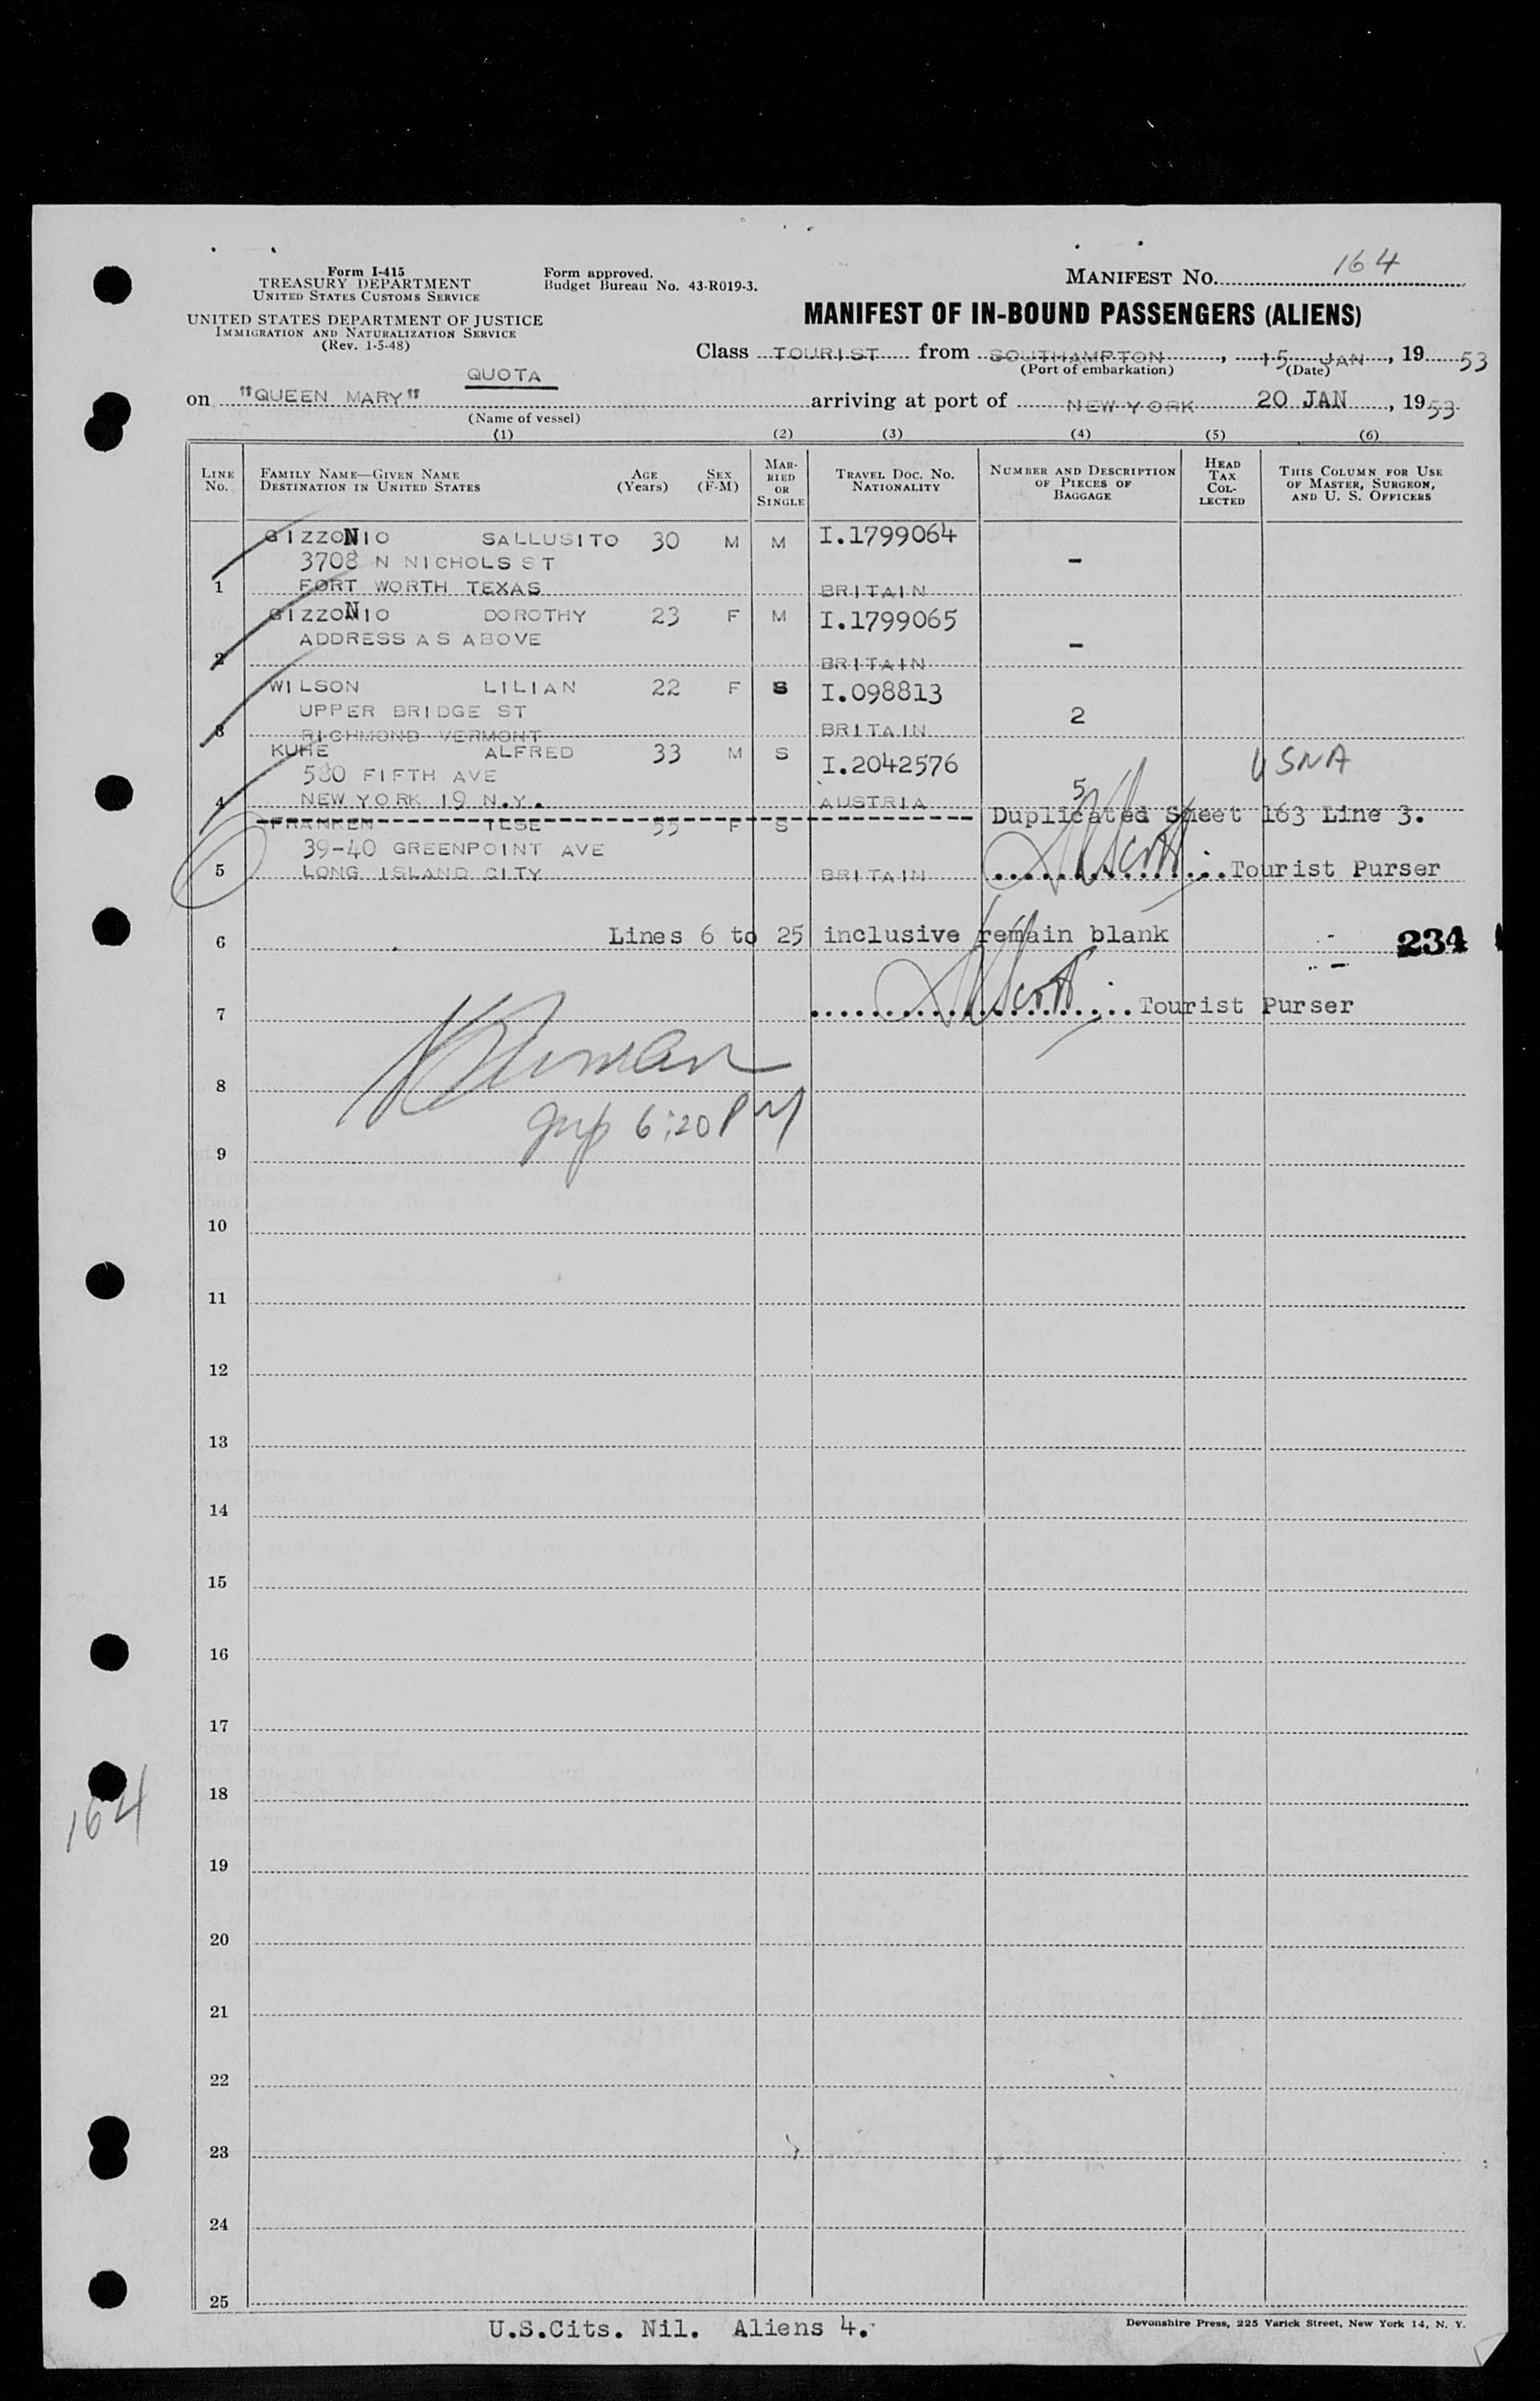 Form I-415
TREASURY DEPARTMENT
UNITED STATES CUSTOMS SERVICE
UNITED STATES DEPARTMENT OF JUSTICE
IMMIGRATION AND NATURALIZATION SERVICE
(Rev. 1-5-48)
Form approved.
Budget Bureau No. 43-R019-3.
MANIFEST NO. 164
MANIFEST OF IN-BOUND PASSENGERS (ALIENS)
Class TOURIST from SOUTHAMPTON, 15 JAN, 1953
(Port of embarkation) (Date)
QUOTA
on "QUEEN MARY" arriving at port of NEW YORK 20 JAN, 1953
(Name of vessel)
(1) (2) (3) (4) (5) (6)
LINE NO. FAMILY NAME—GIVEN NAME DESTINATION IN UNITED STATES AGE (Years) SEX (F-M) MARRIED OR SINGLE TRAVEL DOC. NO. NATIONALITY NUMBER AND DESCRIPTION OF PIECES OF BAGGAGE HEAD TAX COLLECTED THIS COLUMN FOR USE OF MASTER, SURGEON, AND U. S. OFFICERS
GIZZONIO SALLUSITO 30 M M I.1799064
3708 N NICHOLS ST -
1 FORT WORTH TEXAS BRITAIN
GIZZONIO DOROTHY 23 F M I.1799065
ADDRESS AS ABOVE -
2 BRITAIN
WILSON LILIAN 22 F S I.098813
UPPER BRIDGE ST 2
3 RICHMOND VERMONT BRITAIN
KUHE ALFRED 33 M S I.2042576 USNA
580 FIFTH AVE 5
4 NEW YORK 19 N.Y. AUSTRIA
FRANKEN ILSE 55 F S Duplicated Sheet 163 Line 3.
39-40 GREENPOINT AVE
5 LONG ISLAND CITY BRITAIN Scott Tourist Purser
6 Lines 6 to 25 inclusive remain blank 234
7 Scott Tourist Purser
8
6:20 PM
9
10
11
12
13
14
15
16
17
18
164
19
20
21
22
23
24
25
U.S.Cits. Nil. Aliens 4.
Devonshire Press, 225 Varick Street, New York 14, N. Y.